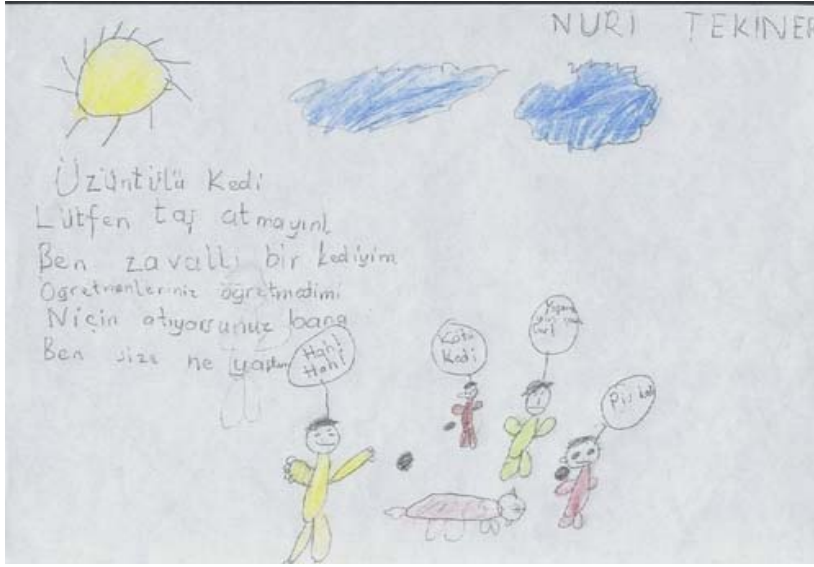 NURİ TEKİNER
Üzüntülü Kedi
Lütfen taş atmayın!
Ben zavallı bir kediyim
Ögretmenleriniz öğretmedimi
Niçin atıyorsunuz bana
Ben size ne yaptım
Hah!
Hah!
Kötü
Kedi
Pis